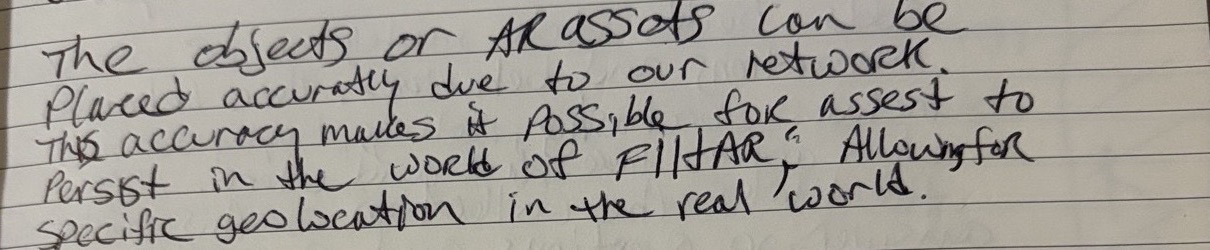 The objects or AR assets can be
Placed accuratly due to our network.
This accuracy makes it possible for assest to
Persist in the world of
Allowing for
specific geolocation in the real world.